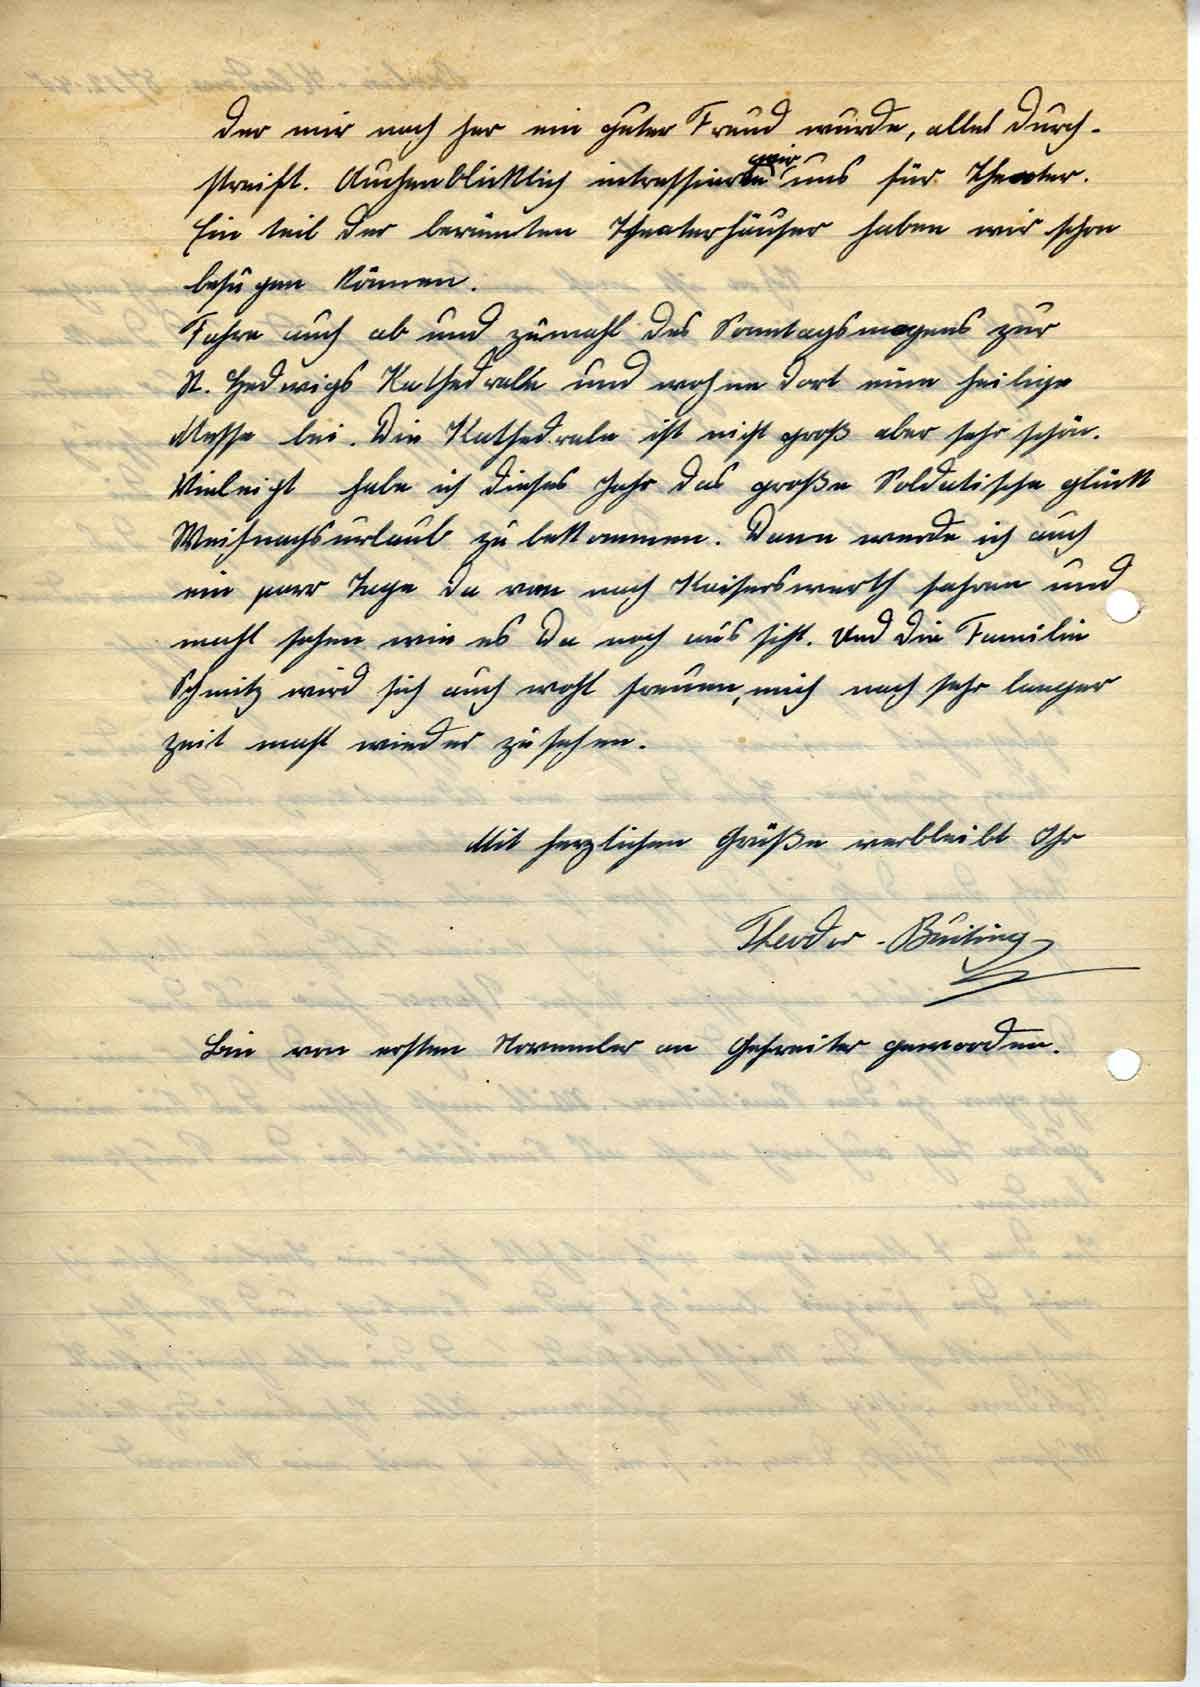 der mir nach her ein guter Freund wurde, alles durch-
streift. Auchenblicklich intressieren wir uns für Theater.
Ein teil der berümten Theaterhäuser haben wir schon
besugen können.
Fahre auch ab und zumahl des Sonntagsmogens zur
St. Hedwigs Kathedralle und wohne dort eine heilige
Messe bei. Die Kathedrale ist nicht groß aber sehr schön.
Vieleicht habe ich dieses Jahr das große Soldatische glück
Weihnachsurlaub zu bekommen. Dann werde ich auch
ein parr Tage da von nach Kaiserswerth fahren und
mahl sehen wie es da noch aus siht. Und die Familie
Schmitz wird sich auch wohl freuen, mich nach sehr langer
zeit mahl wieder zu sehen.
Mit herzlichen Grüße verbleibt Ihr
Theodor Büiting
Bin von ersten November an Gefreiter geworden.